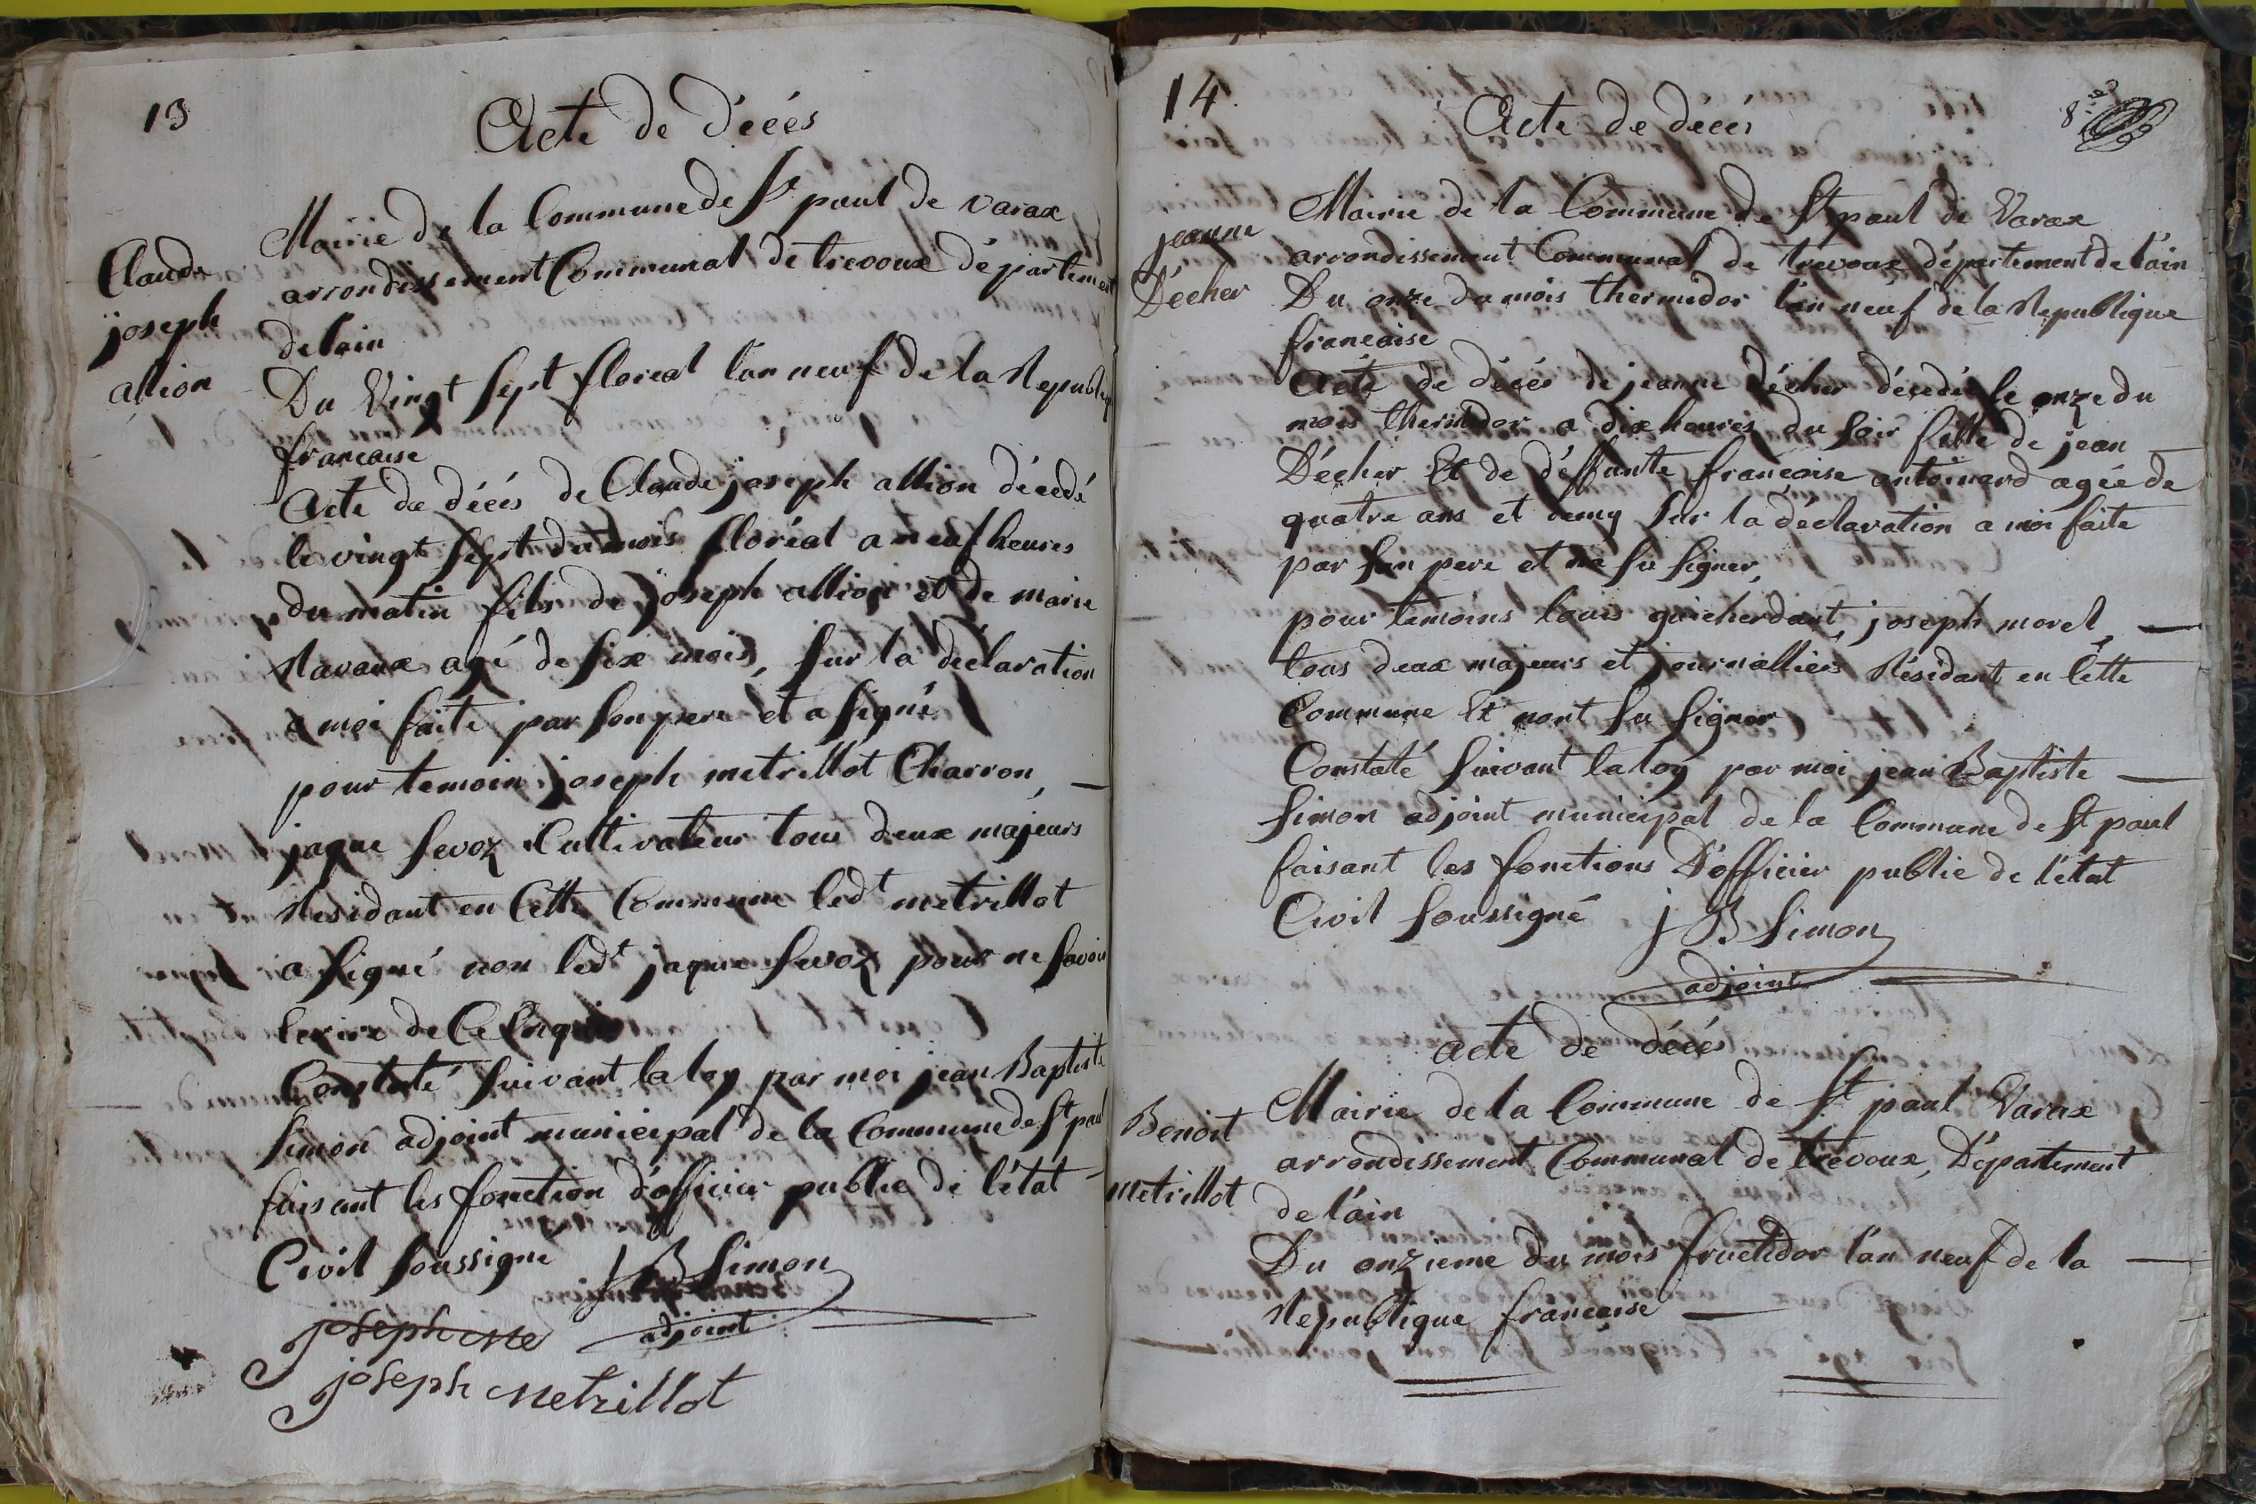 13
Acte de décés
Claude
joseph
allion
Mairie de la Commune de St paul de varax
arrondissement Communal de trevoux département
de lain
Du Vingt sept floreal lan neuf de la Republiq
francaise
Acte de décés de Claude joseph allion décedé
le vingt sept du mois floréal a neuf heures
du matin fils de joseph allion et de marie
Ravaux agé de six mois, sur la déclaration
a moi faite par son pere et a signé
pour temoin joseph metrillot Charron,
jaque sevoz Cultivateur tous deux majeurs
Residant en Cette Commune ledt metrillot
a signé non ledt jaque sevoz pour ne savoir
lecrire de Ce Enquis
Constaté suivant la loy par moi jean Baptiste
simon adjoint municipal de la Commune de St paul
faisant les fonction d'officier publie de létat
Civil soussigné J B Simon
adjoint
joseph Me
joseph Metrillot
14
8
Acte de décés
jeanne
Décher
Mairie de la Commune de St paul de Varax
arrondissement Communal de trevoux département de l'ain
Du onze du mois thermidor l'an neuf de la Republique
francaise
Acte de décés de jeanne Décher décedé le onze du
mois thermidor a dix heures du soir fille de jean
Décher Et de déffunte francoise antoinard agée de
quatre ans et demy sur la déclaration a moi faite
par son pere et na su signer,
pour temoins louis guicherdant, joseph morel,
tous deux majeurs et journalliers Résidant en Cette
Commune Et nont su signer
Constaté suivant la loy par moi jean Baptiste
simon adjoint municipal de la Commune de St paul
faisant les fonctions D'officier publie de l'état
Civil soussigné J B Simon
adjoint
acte de décés
Benoit
Metrillot
Mairie de la Commune de St paul Varax
arrondissement Communal de trévoux, Département
de l'ain
Du onzieme du mois fructidor l'an neuf de la
Republique francaise